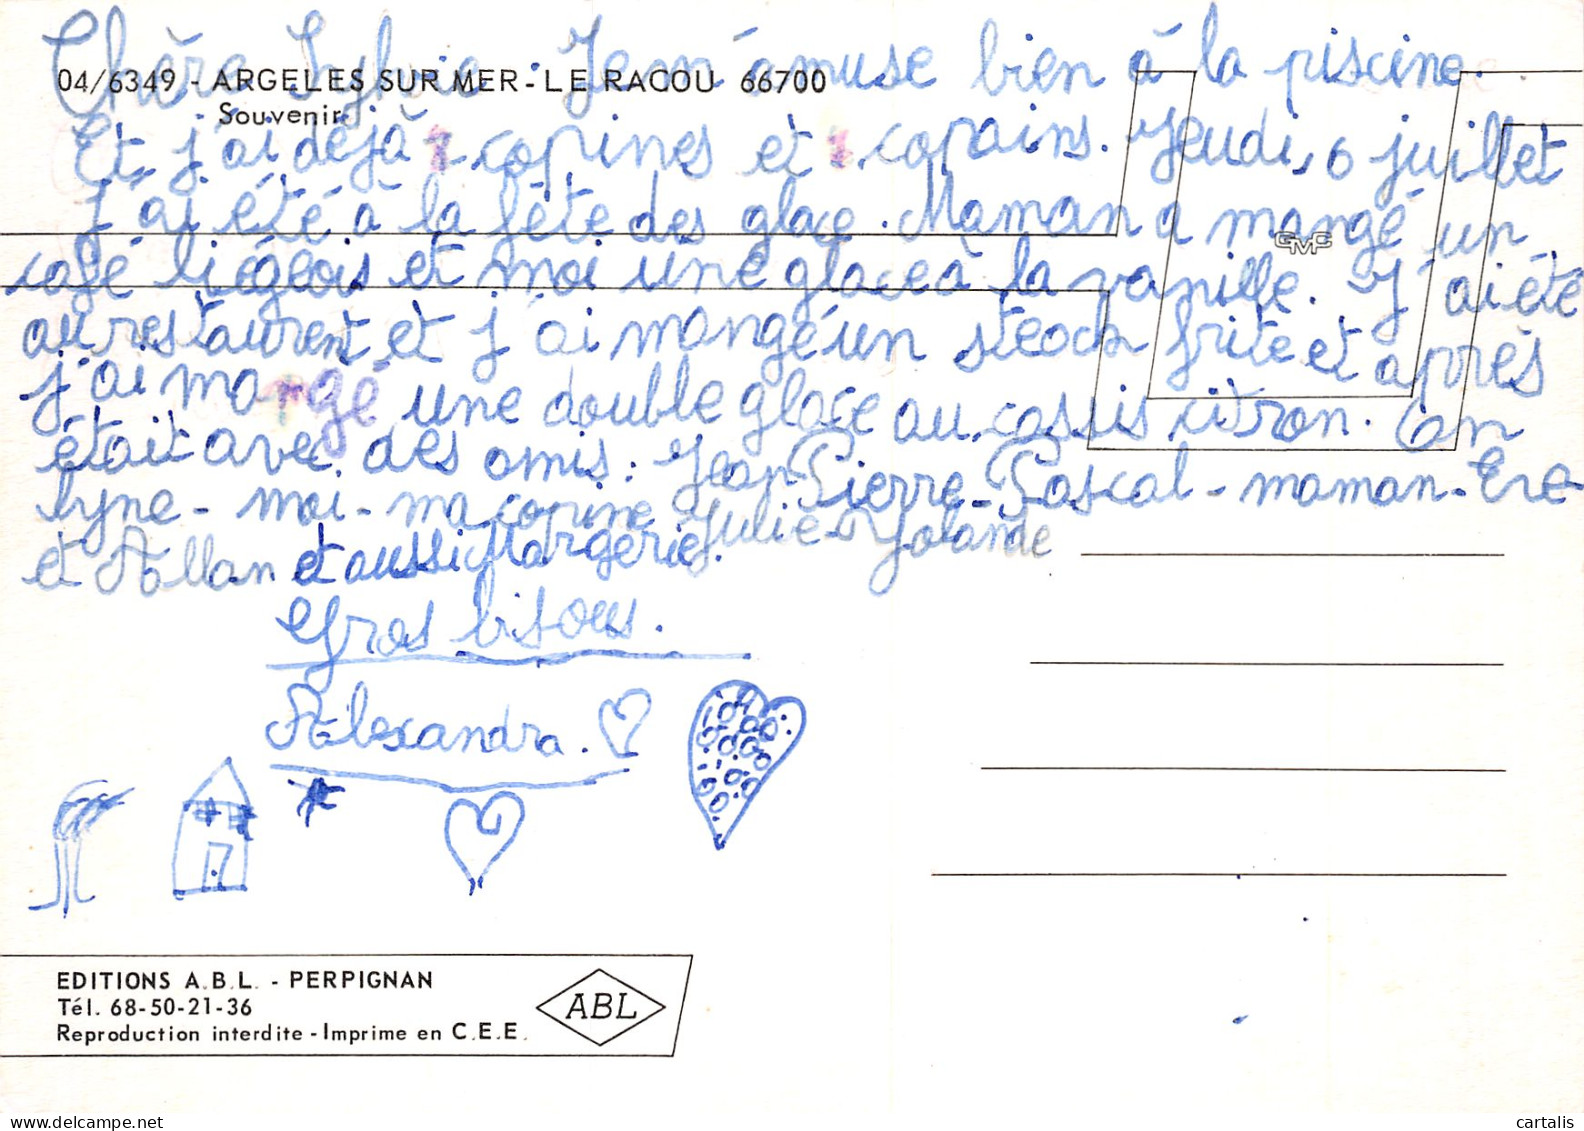 Chère Sylvie. Je m'amuse bien à la piscine.
04/6349 - ARGELES SUR MER - LE RACOU 66700
Souvenir
Et j'ai déjà copines et copains. Jeudi, 6 juillet
j'ai été à la fête des glace. Maman a mangé un
café liégeois et moi une glace à la vanille. J'ai été
au restaurent et j'ai mangé un steack frite et après
j'ai mangé une double glace au cassis citron. On
était avec des amis: Jean-Pierre-Pascal-maman-Eve-
lyne-moi-ma copine Julie-Yolande
et Allan et aussi Margerie.
Gros bisous.
Alexandra.
EDITIONS A.B.L. - PERPIGNAN
Tél. 68-50-21-36
Reproduction interdite - Imprime en C.E.E.
ABL
GMPC
cartalis